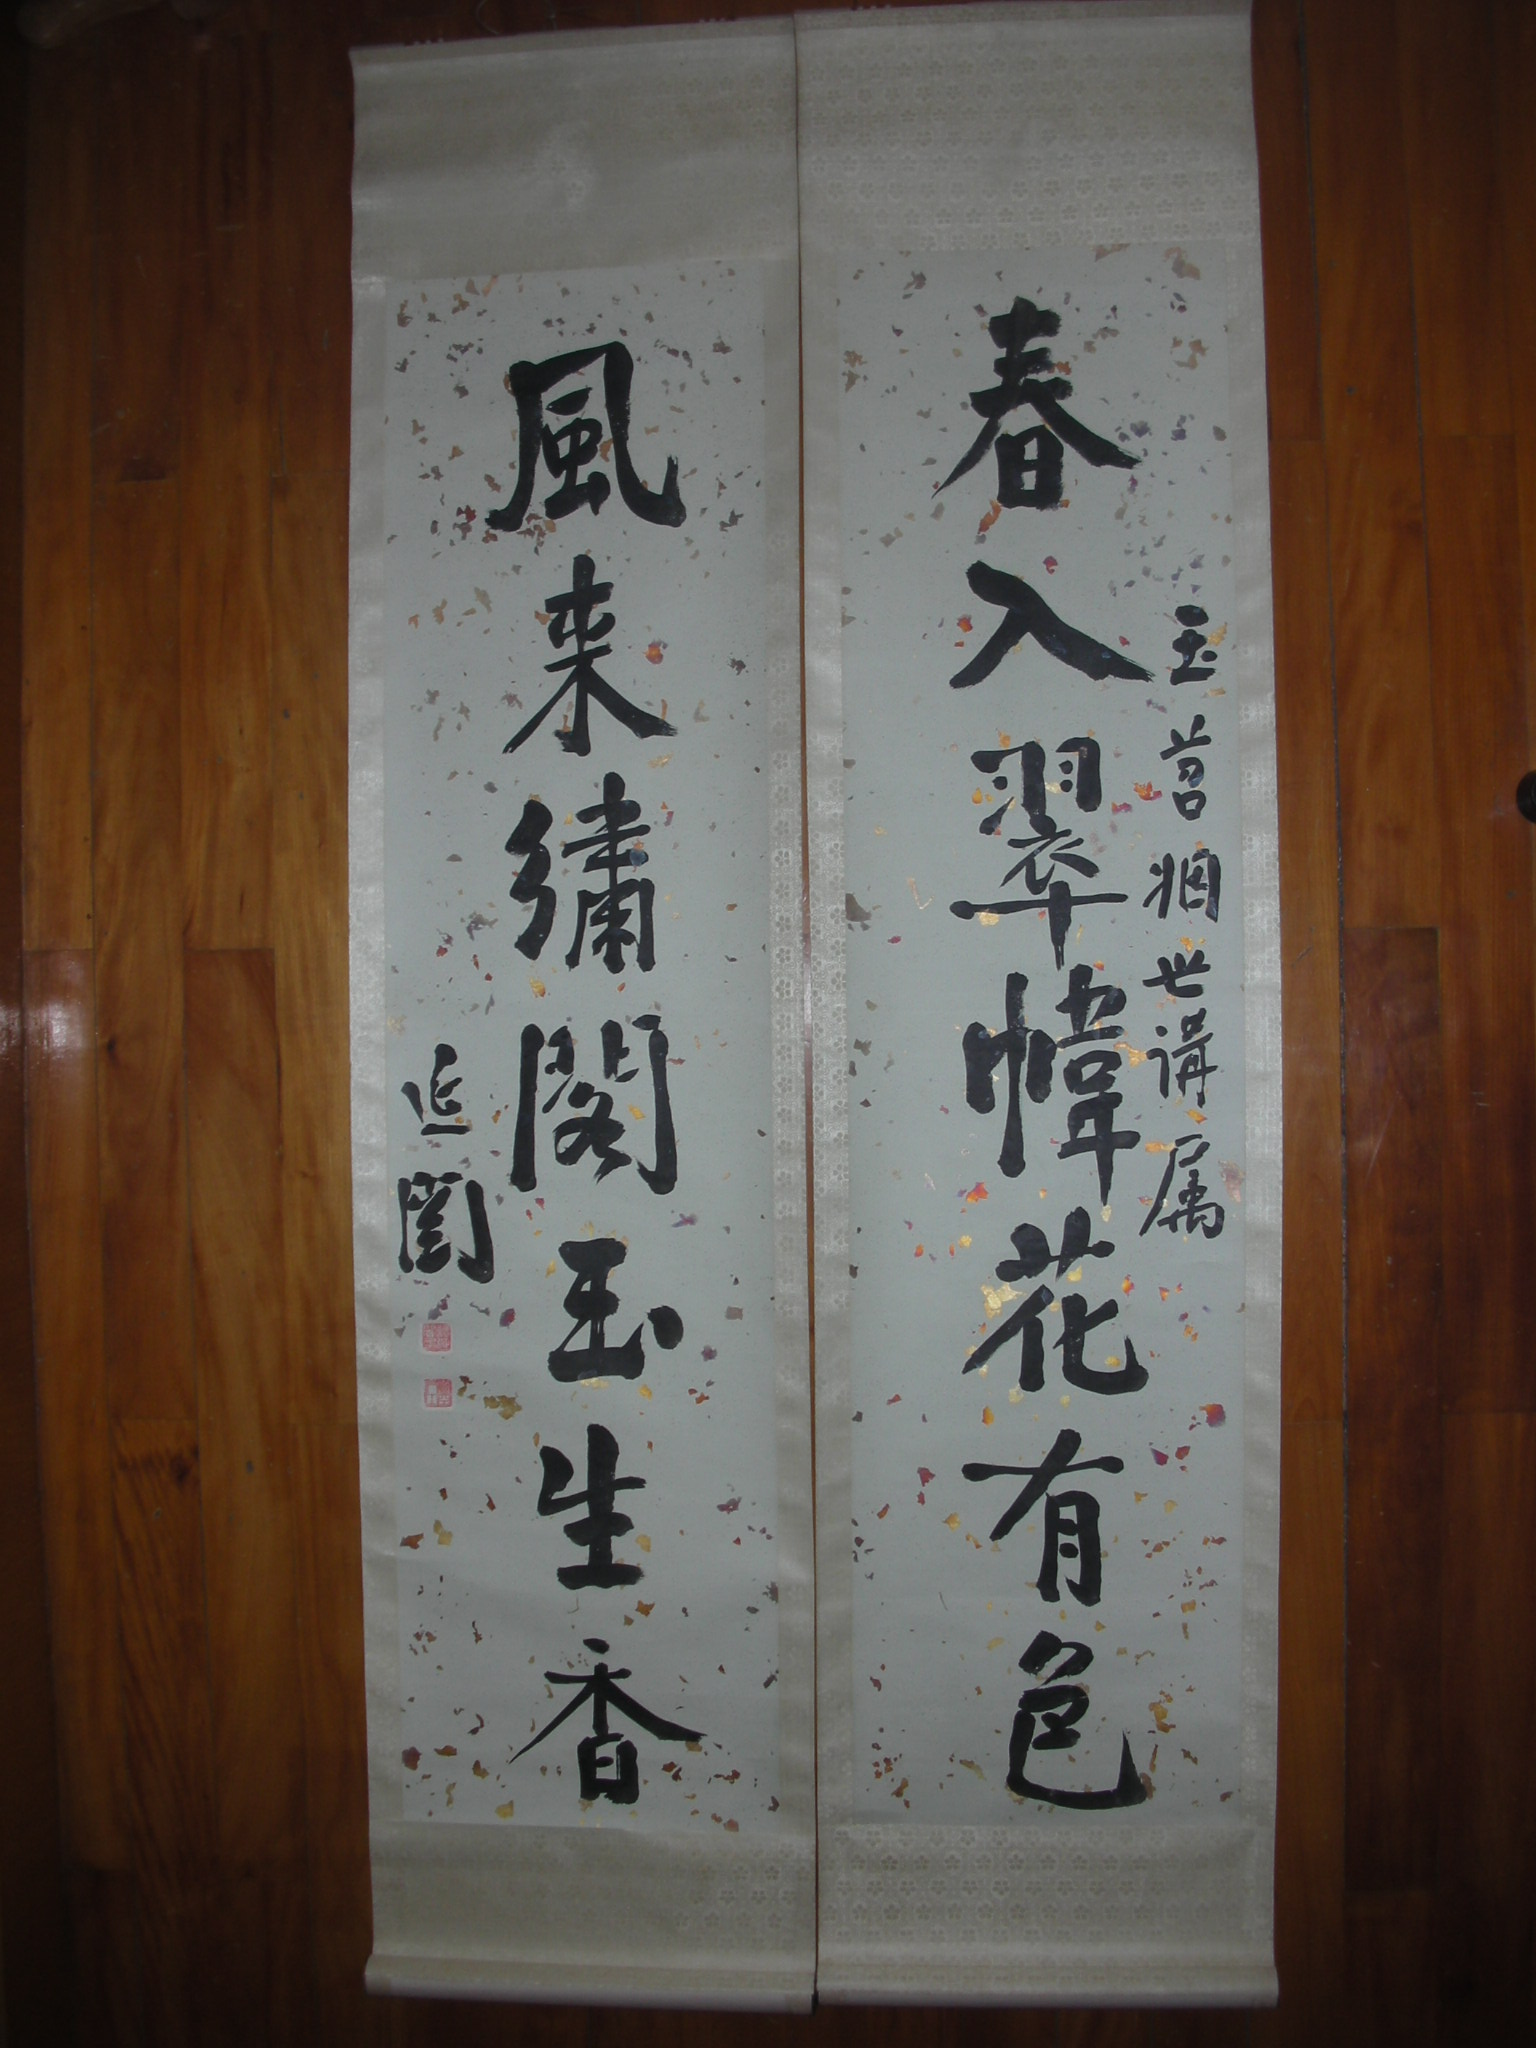 玉莒姻世講属
春入翠幃花有色
風来繡閣玉生香
延闓